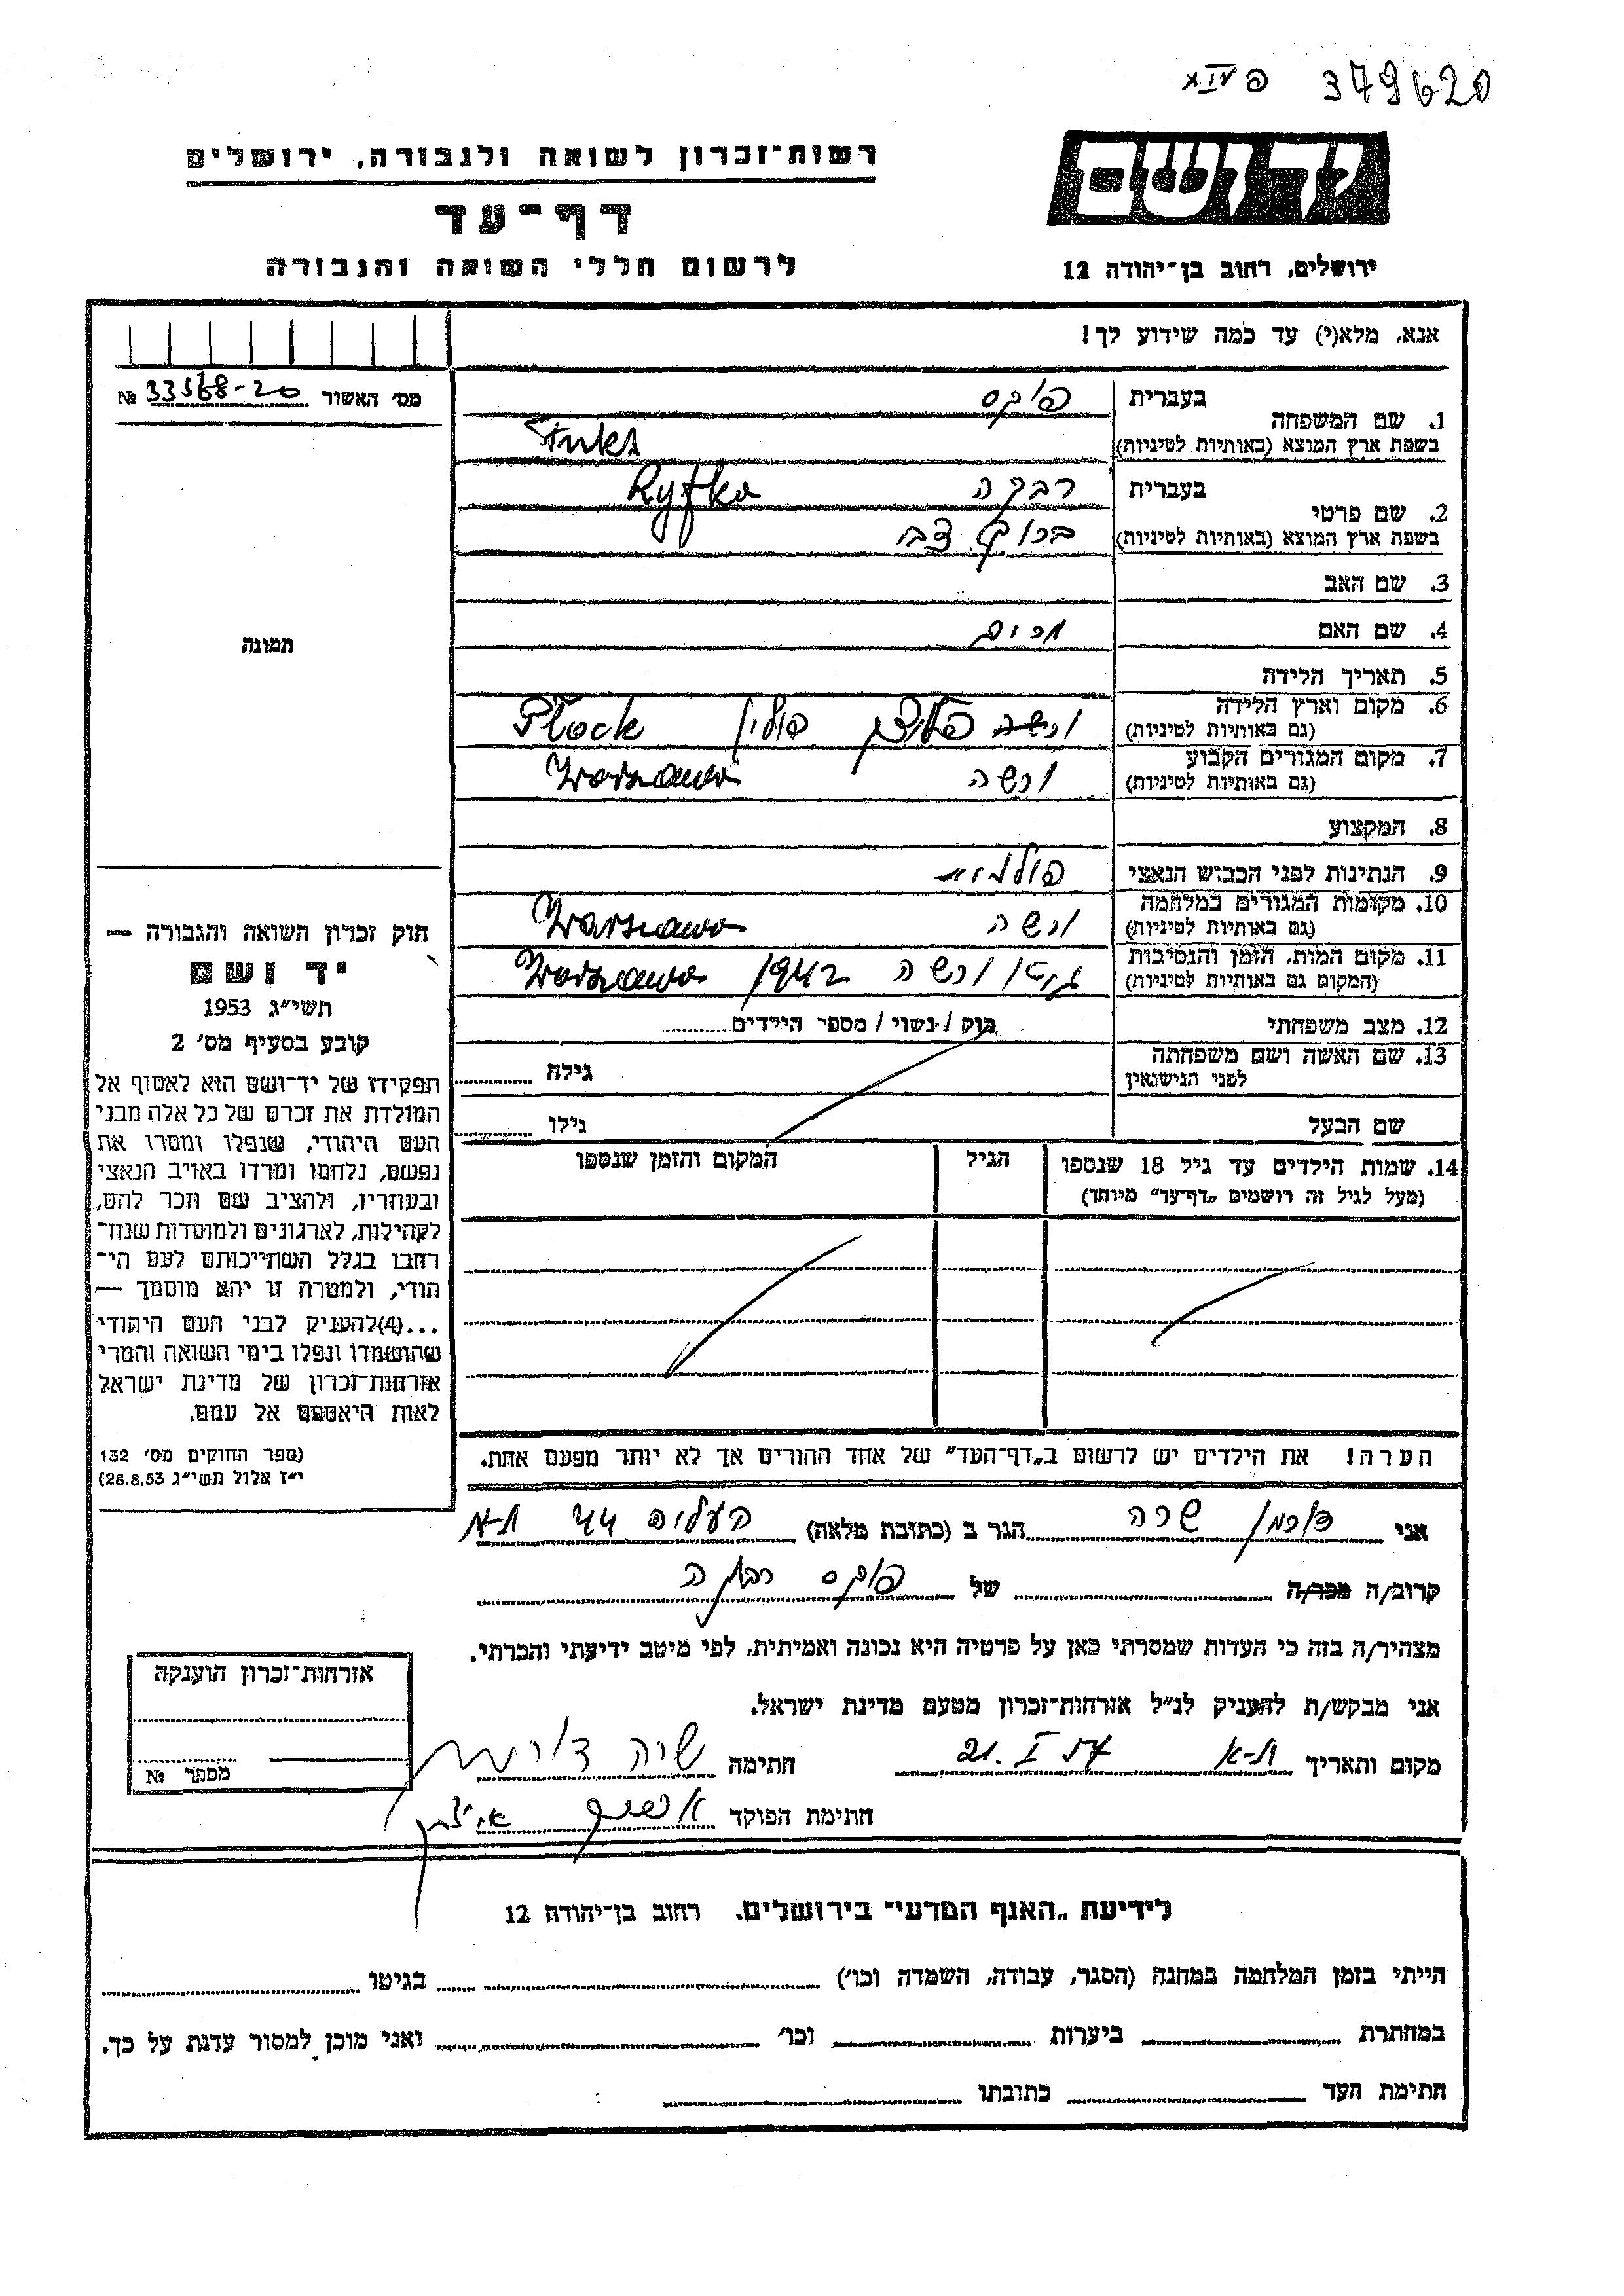 פ XVI 379620
רשות-זכרון לשואה ולגבורה, ירושלים
יד ושם
דף-עד
לרשום חללי השואה והגבורה
ירושלים, רחוב בן-יהודה 12
אנא, מלא(י) עד כמה שידוע לך!
מס׳ האשור 33568-20 №
בעברית פוקס
1. שם המשפחה
בשפת ארץ המוצא (באותיות לטיניות) Fuks
בעברית רבקה Ryfka
2. שם פרטי
בשפת ארץ המוצא (באותיות לטיניות) ברוך צבי
3. שם האב
4. שם האם מרים
5. תאריך הלידה
6. מקום וארץ הלידה
(גם באותיות לטיניות) ורשה פלוצק פולין Płock
7. מקום המגורים הקבוע
(גם באותיות לטיניות) ורשה Warszawa
8. המקצוע
9. הנתינות לפני הכבוש הנאצי פולנית
10. מקומות המגורים במלחמה
(גם באותיות לטיניות) ורשה Warszawa
11. מקום המות, הזמן והנסיבות
(המקום גם באותיות לטיניות) גיטו ורשה 1942 Warszawa
12. מצב משפחתי רוק / נשוי / מספר הילדים
13. שם האשה ושם משפחתה
לפני הנישואין גילה
שם הבעל גילו
14. שמות הילדים עד גיל 18 שנספו
(מעל לגיל זה רושמים „דף-עד” מיוחד)
הגיל
המקום והזמן שנספו
תמונה
חוק זכרון השואה והגבורה —
יד ושם
תשי״ג 1953
קובע בסעיף מס׳ 2
תפקידו של יד-ושם הוא לאסוף אל
המולדת את זכרם של כל אלה מבני
העם היהודי, שנפלו ומסרו את
נפשם, נלחמו ומרדו באויב הנאצי
ובעוזריו, ולהציב שם וזכר להם,
לקהילות, לארגונים ולמוסדות שנח-
רבו בגלל השתייכותם לעם הי-
הודי, ולמטרה זו יהא מוסמך —
...(4) להעניק לבני העם היהודי
שהושמדו ונפלו בימי השואה והמרי
אזרחות-זכרון של מדינת ישראל
לאות היאספם אל עמם.
(ספר החוקים מס׳ 132
י״ז אלול תשי״ג 28.8.53)
הערה! את הילדים יש לרשום ב„דף-העד” של אחד ההורים אך לא יותר מפעם אחת.
אני שרה הגר ב (כתובת מלאה) 44 ת-א
קרוב/ה מכר/ה של פוקס רבקה
מצהיר/ה בזה כי העדות שמסרתי כאן על פרטיה היא נכונה ואמיתית, לפי מיטב ידיעתי והכרתי.
אני מבקש/ת להעניק לנ״ל אזרחות-זכרון מטעם מדינת ישראל.
מקום ותאריך ת-א 21. I 57 חתימה שרה
חתימת הפוקד
אזרחות-זכרון הוענקה
מספר №
לידיעת „האגף המדעי” בירושלים, רחוב בן-יהודה 12
הייתי בזמן המלחמה במחנה (הסגר, עבודה, השמדה וכו׳) בגיטו
במחתרת ביערות וכו׳ ואני מוכן למסור עדות על כך.
חתימת העד כתובתו